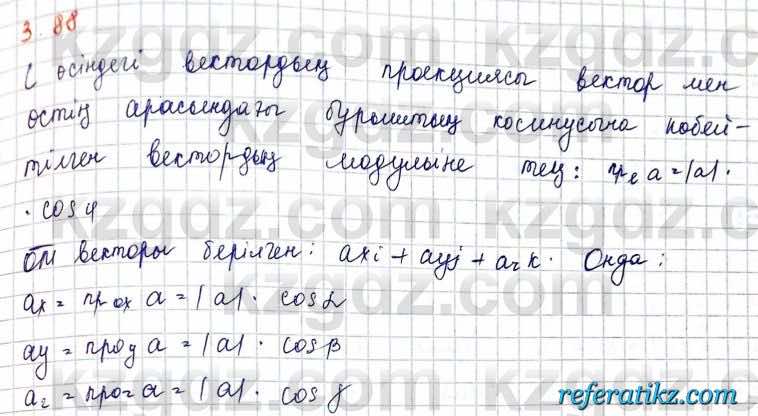 3.88
ℓ осіндегі вектордың проекциясы вектор мен
остің арасындағы бұрыштың косинусына көбей-
тілген вектордың модуліне тең: пр ℓ a = |a| ·
· cos φ
OM векторы берілген: axi + ayj + azk. Онда:
ax = пр ox a = |a| · cos α
ay = пр oy a = |a| · cos β
az = пр oz a = |a| · cos γ
kzgdz.com
referatikz.com